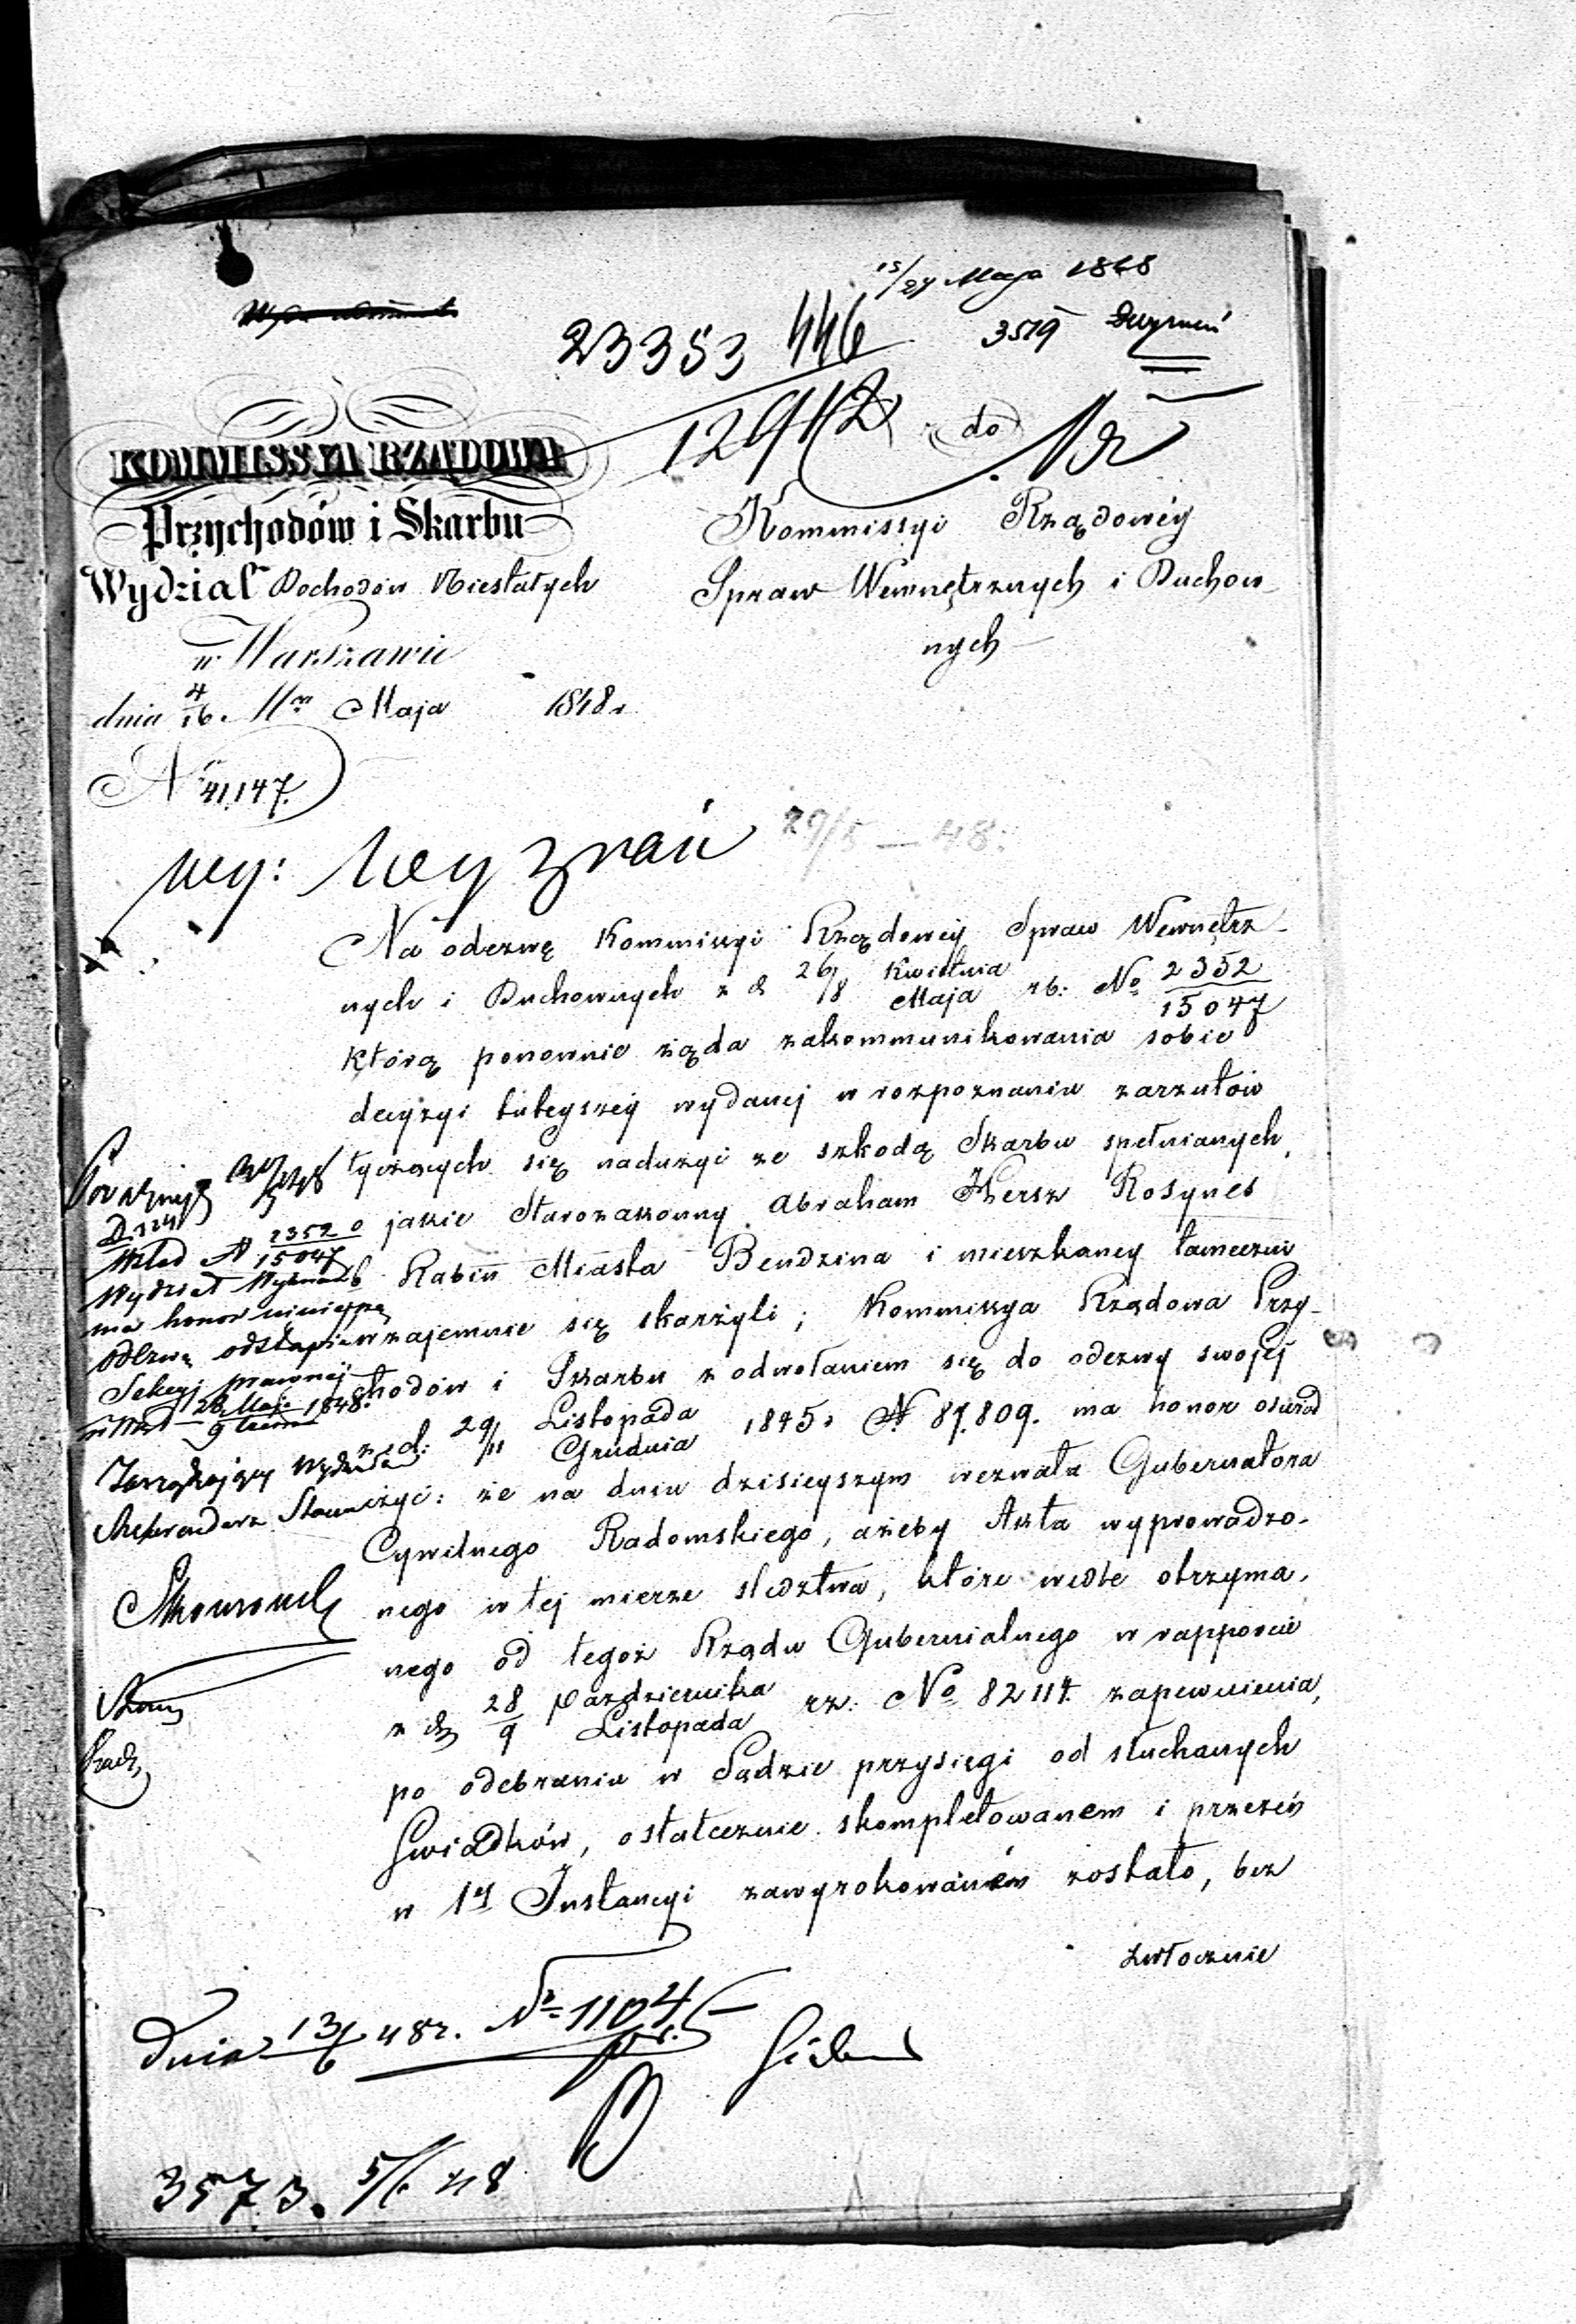 15/27 Maja 1848
23353 446 3519
12942 do
KOMMISSYA RZĄDOWA
Przychodów i Skarbu
Wydział Dochodów Niestałych
w Warszawie
dnia 4/16 Maja 1848 r.
N° 41,147.
Kommissyi Rządowéy
Spraw Wewnętrznych i Duchow-
nych
wy: Wyznań 29/5 – 48.
Na odezwę Kommissyi Rządowéy Spraw Wewnętrz-
nych i Duchownych z d 26/8 Kwietnia/Maja rb: No 2352/15047
którą ponownie żąda zakommunikowania sobie
decyzyi tuteyszéy wydanej w rozpoznaniu zarzutów
tyczących się nadużyć ze szkodą Skarbu spełnianych,
o jakie Starozakonny Abraham Hersz Rosynes
Rabin Miasta Bendzina i mieszkańcy tameczni
wzajemnie się skarżyli; Kommissya Rządowa Przy-
chodów i Skarbu z odwołaniem się do odezwy swojéj
z d: 29/11 Listopada/Grudnia 1845 r N. 87.809. ma honor oświad
czyć: że na dniu dzisieyszym wezwała Gubernatora
Cywilnego Radomskiego, ażeby Akta wyprowadzo-
nego w tej mierze sledztwa, które wedle otrzyma-
nego od tegoż Rządu Gubernialnego w rapporcie
z d 28/9 Października/Listopada rz: No 82114 zapewnienia,
po odebraniu w Sądzie przysięgi od słuchanych
Swiadków, ostatecznie skompletowanem i przezeń
w 1éj Instancyi zawyrokowaném zostało, bez
zwłocznie
2352/15047
Wydział
ma honor niniejszą
Odezwę odstąpić
Sekcyi prawnéj
1848.
Zarządzający Wydziałem
Dnia 13/6 48 r. No 1104
3573. 5/6 48